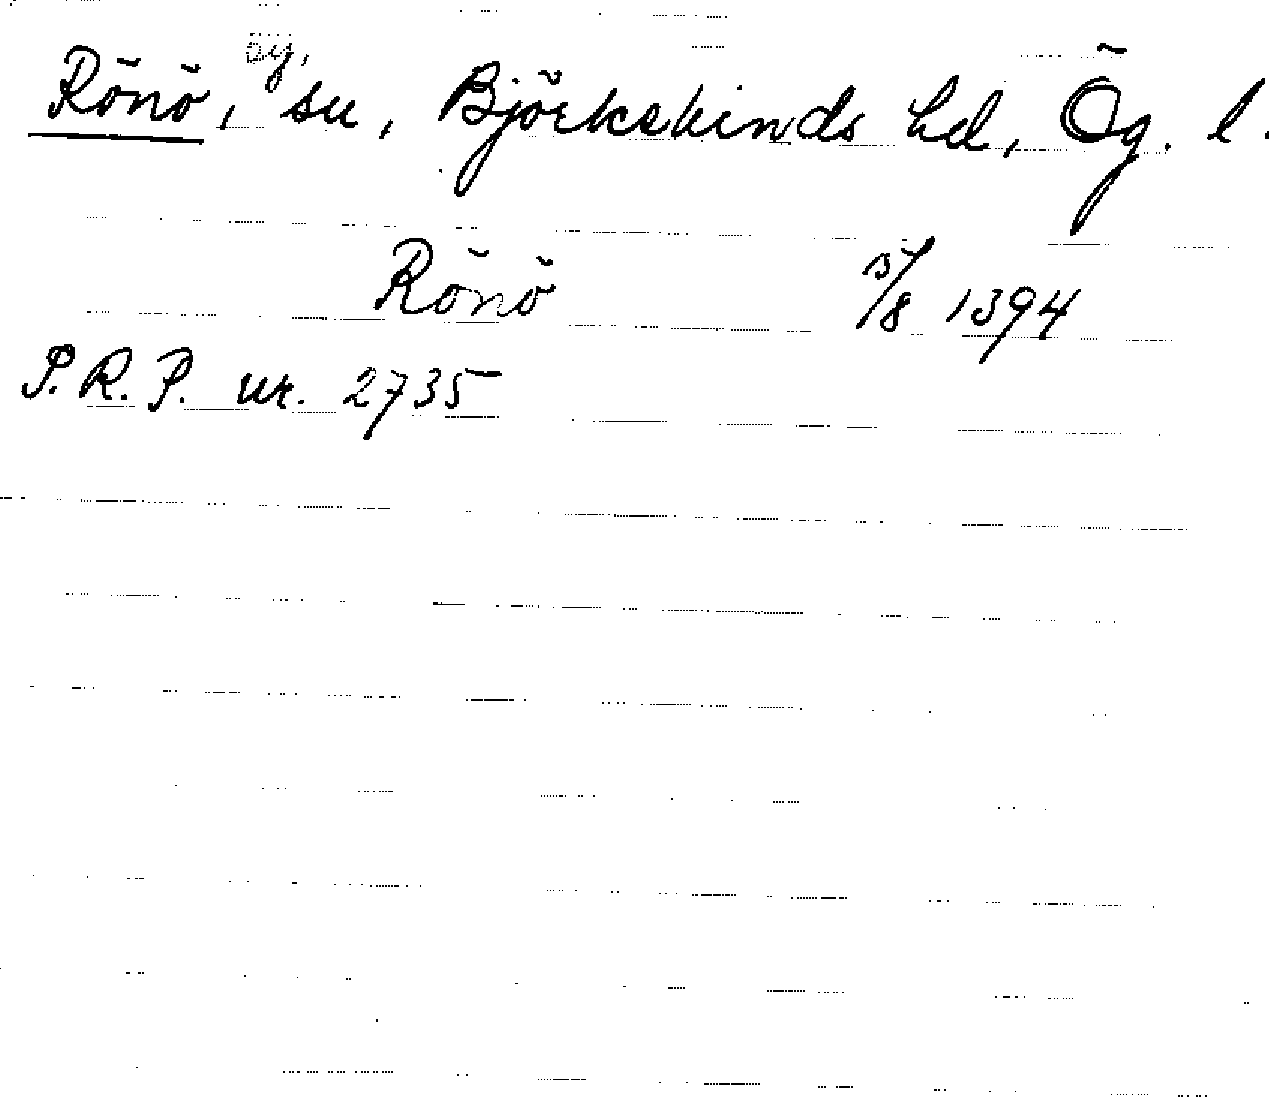 Rönö, öy, sn, Björkekinds hd, Ög. l.
Rönö 15/8 1394
P. R. P. nr. 2735